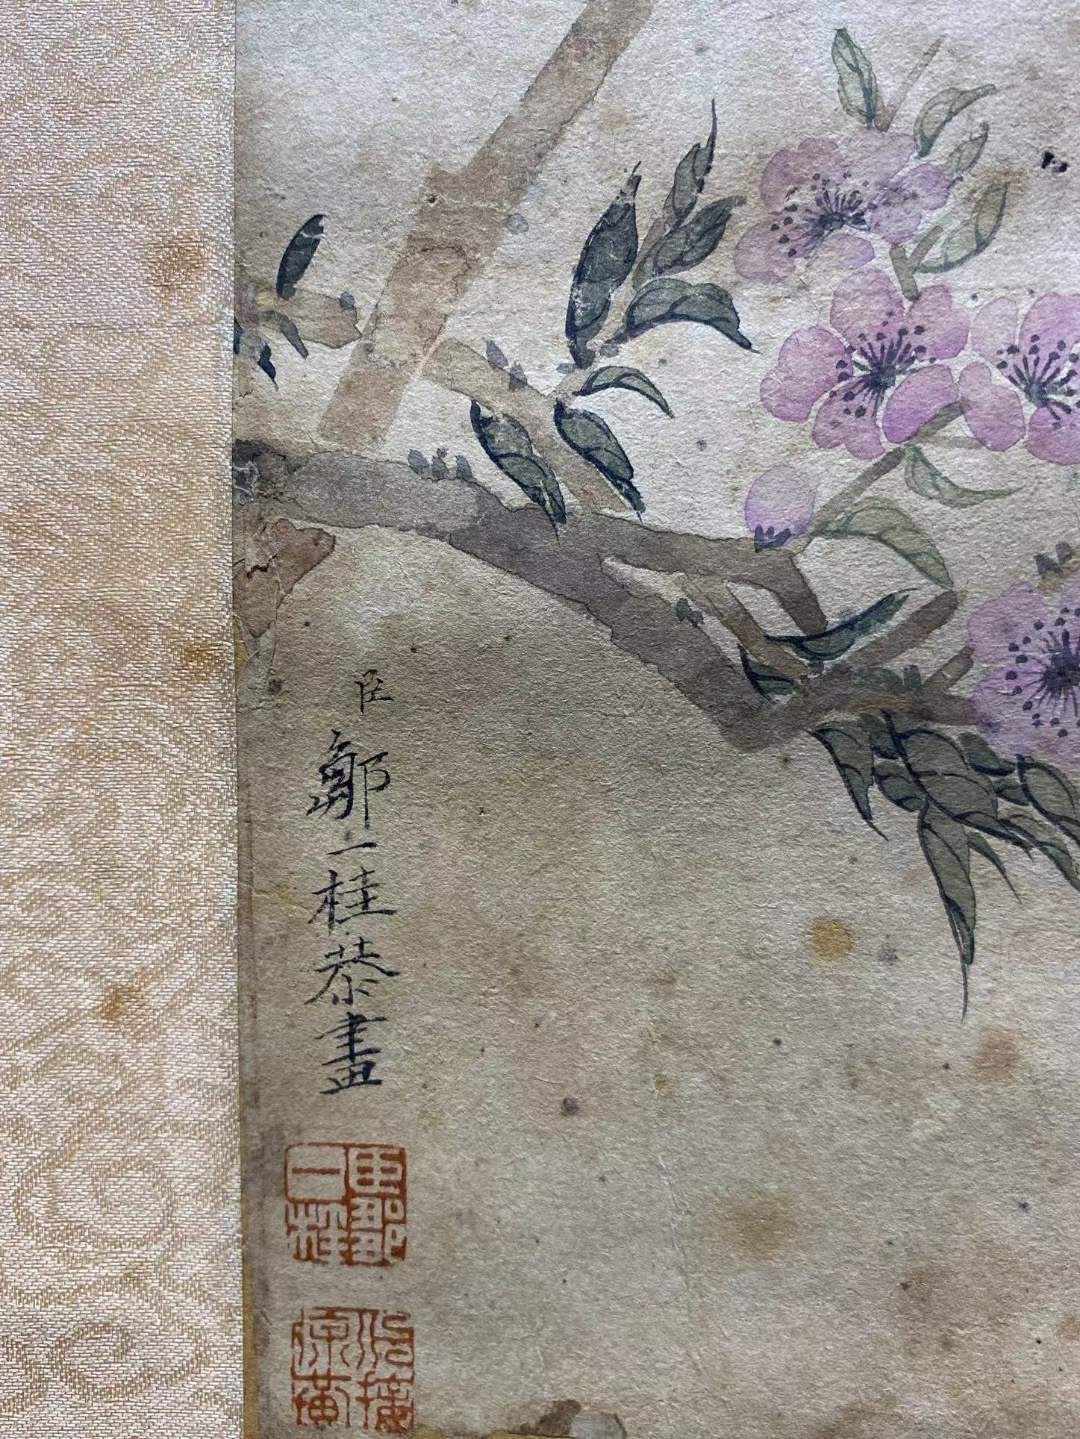 臣鄒一桂恭畫
臣鄒一桂